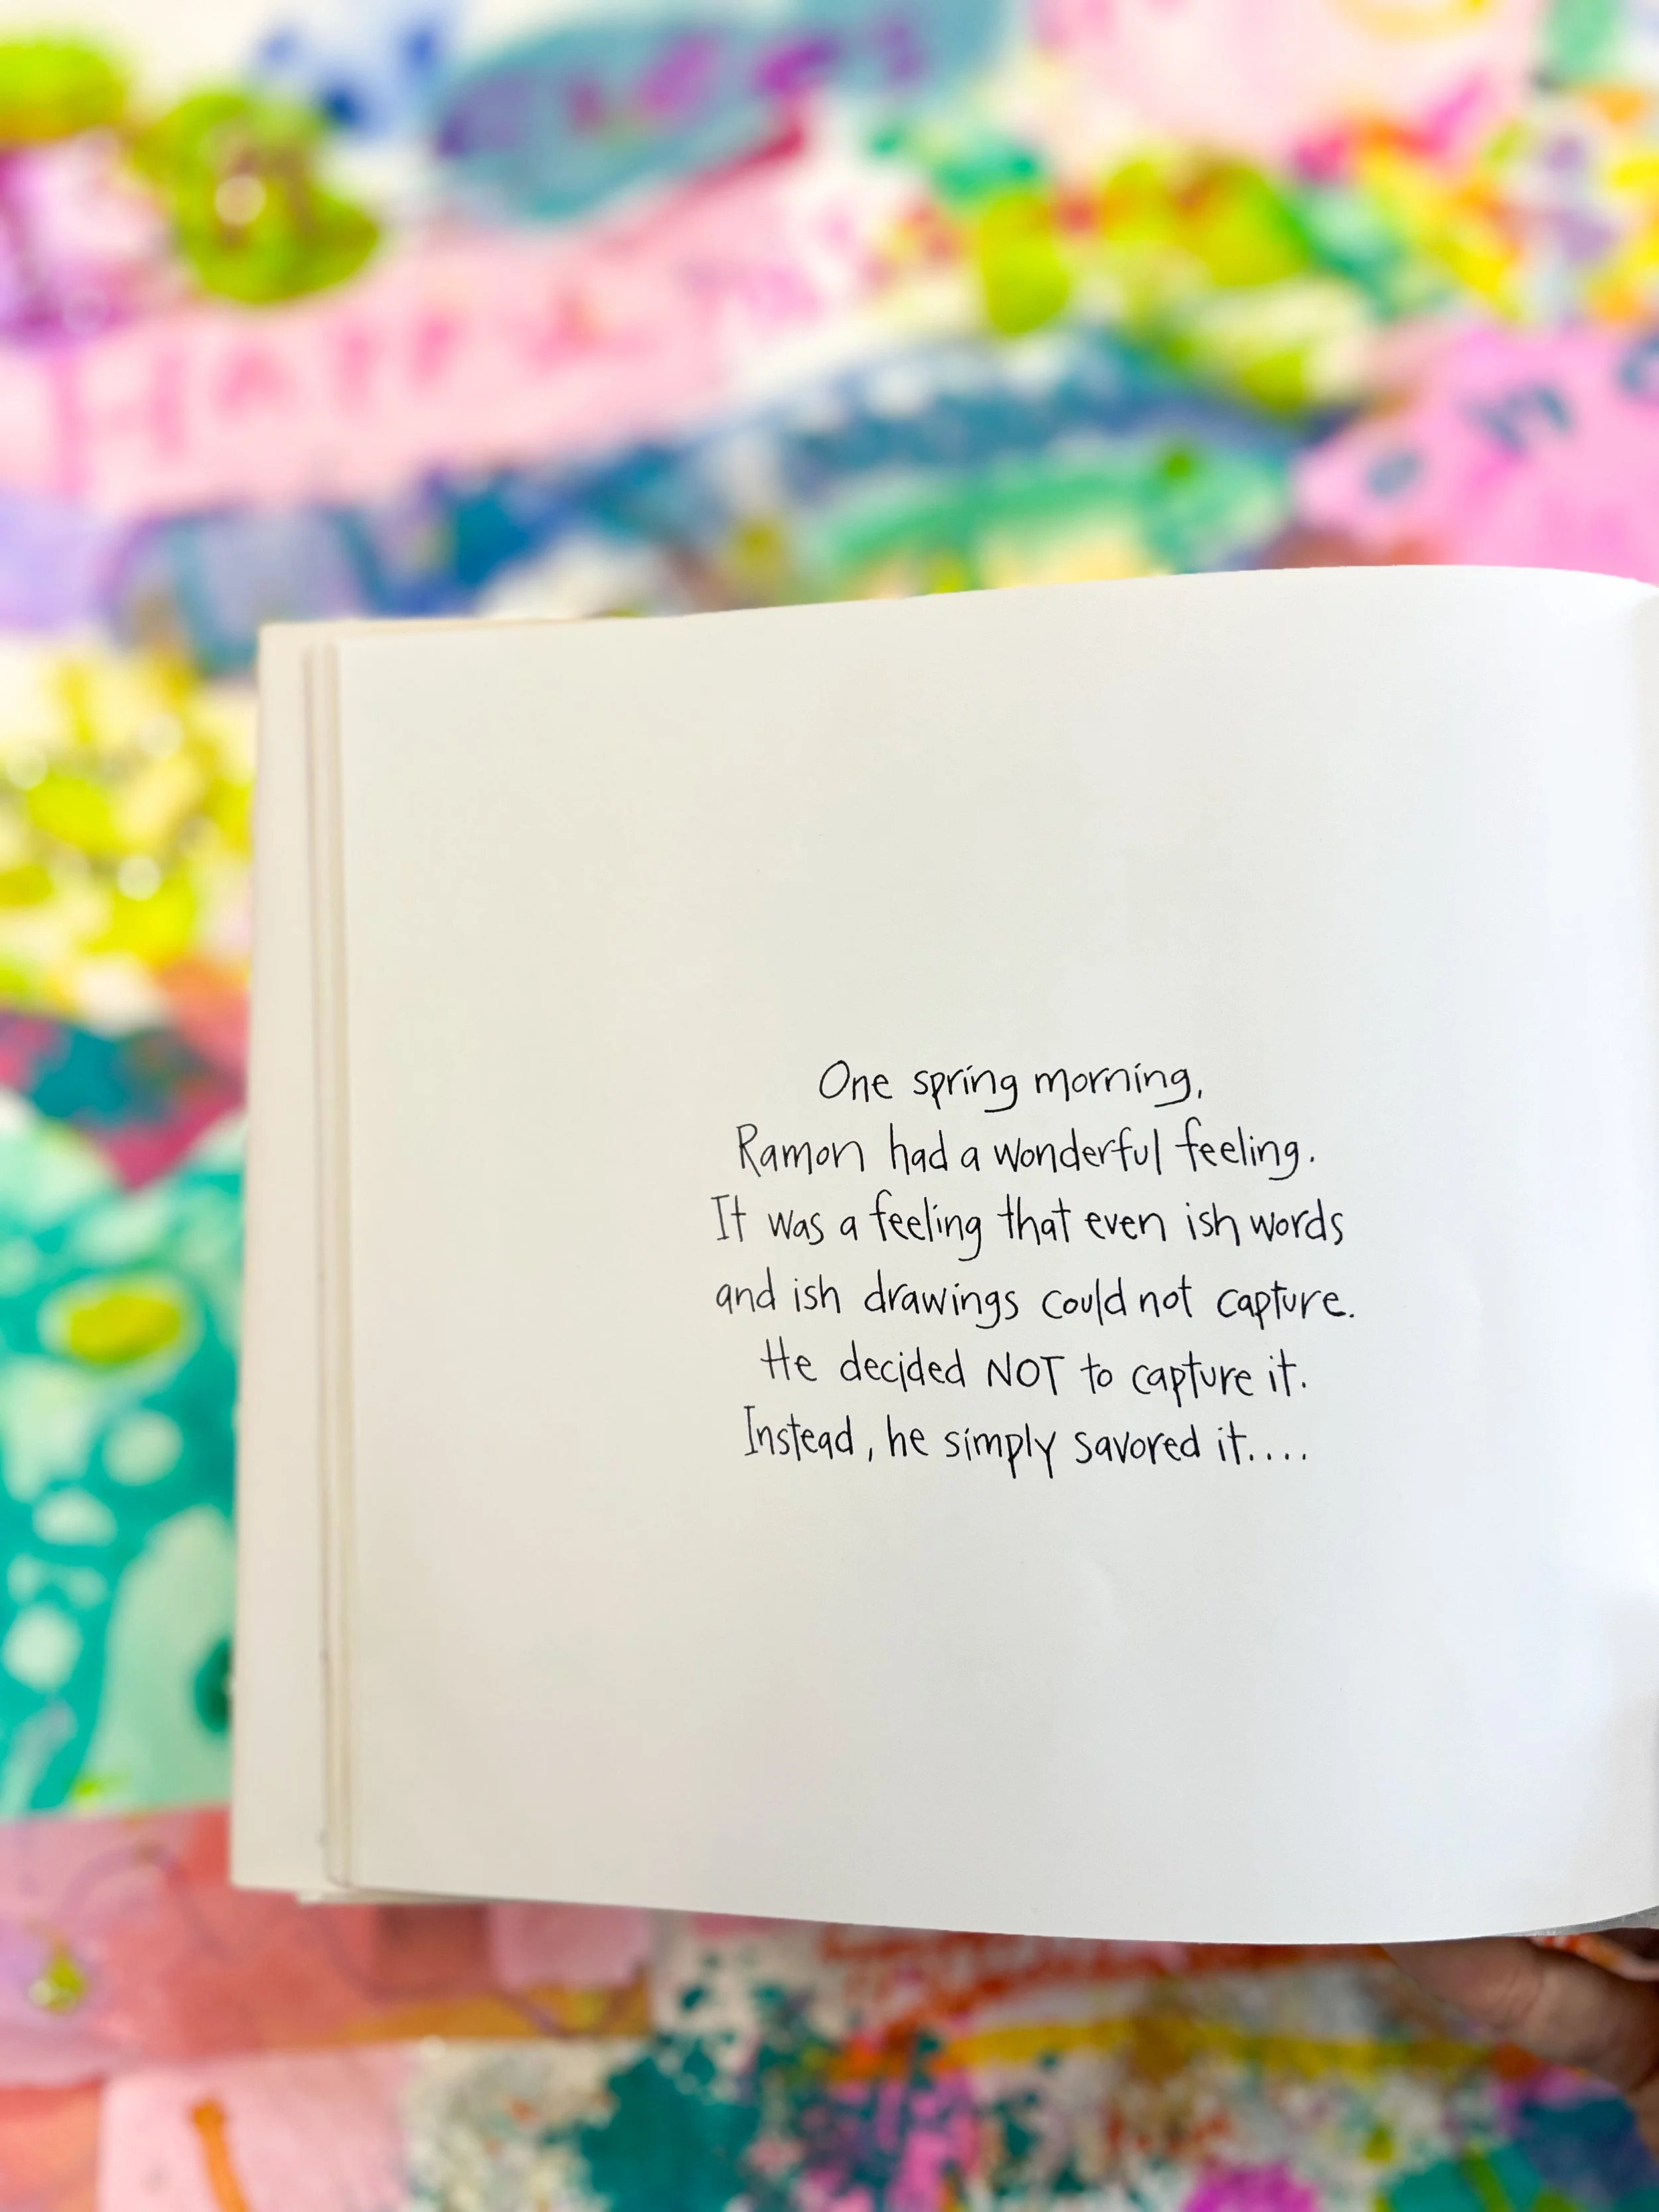 One spring morning,
Ramon had a wonderful feeling.
It was a feeling that even ish words
and ish drawings could not capture.
He decided NOT to capture it.
Instead, he simply savored it....